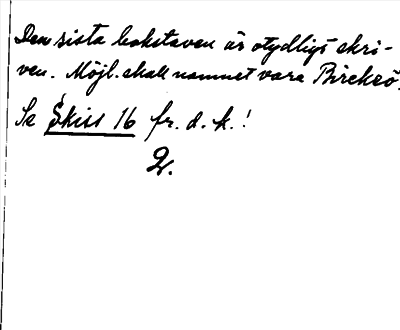 Den sista bokstaven är otydligt skri-
ven. Möjl. skall namnet vara Birckeö.
Se Skiss 16 fr. d. k.!
2.